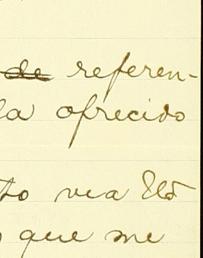 de referen-
la ofrecido
to vea Ud
que me